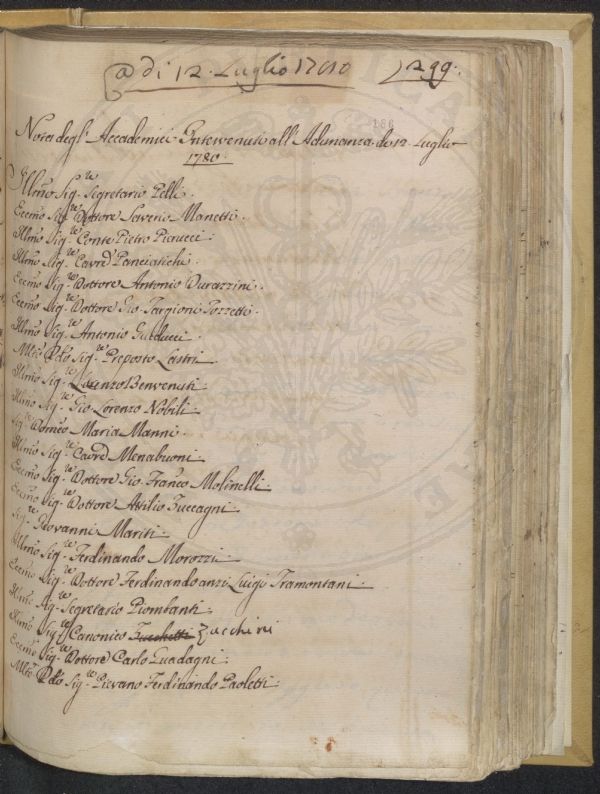 a dì 12. Luglio 1780
299.
186
Nota degl' Accademici Intervenuti all' Adunanza de 12 Luglio
1780.
Illmo Sigre Segretario Pelli.
Eccmo Sigre Dottore Saverio Manetti.
Illmo Sigre Conte Pietro Pierucci.
Illmo Sigre Cavre Panciatichi.
Eccmo Sigre Dottore Antonio Durazzini.
Eccmo Sigre Dottore Gio Targioni Tozzetti.
Illmo Sigre Antonio Guiducci.
Mto Rdo Sigre Preposto Lastri.
Illmo Sigre Lorenzo Benvenuti.
Illmo Sigre Gio Lorenzo Nobili
Sigre Domco Maria Manni.
Illmo Sigre Cavre Menabuoni.
Eccmo Sigre Dottore Gio Franco Molinelli.
Eccmo Sigre Dottore Attilio Zuccagni.
Sigre Giovanni Mariti.
Illmo Sigre Ferdinando Morozzi.
Eccmo Sigre Dottore Ferdinando anzi Luigi Tramontani.
Illmo Sigre Segretario Piombanti.
Illmo Sigre Canonico Zucchetti Zucchini
Eccmo Sigre Dottore Carlo Guadagni.
Mto Rdo Sigre Pievano Ferdinando Paoletti.